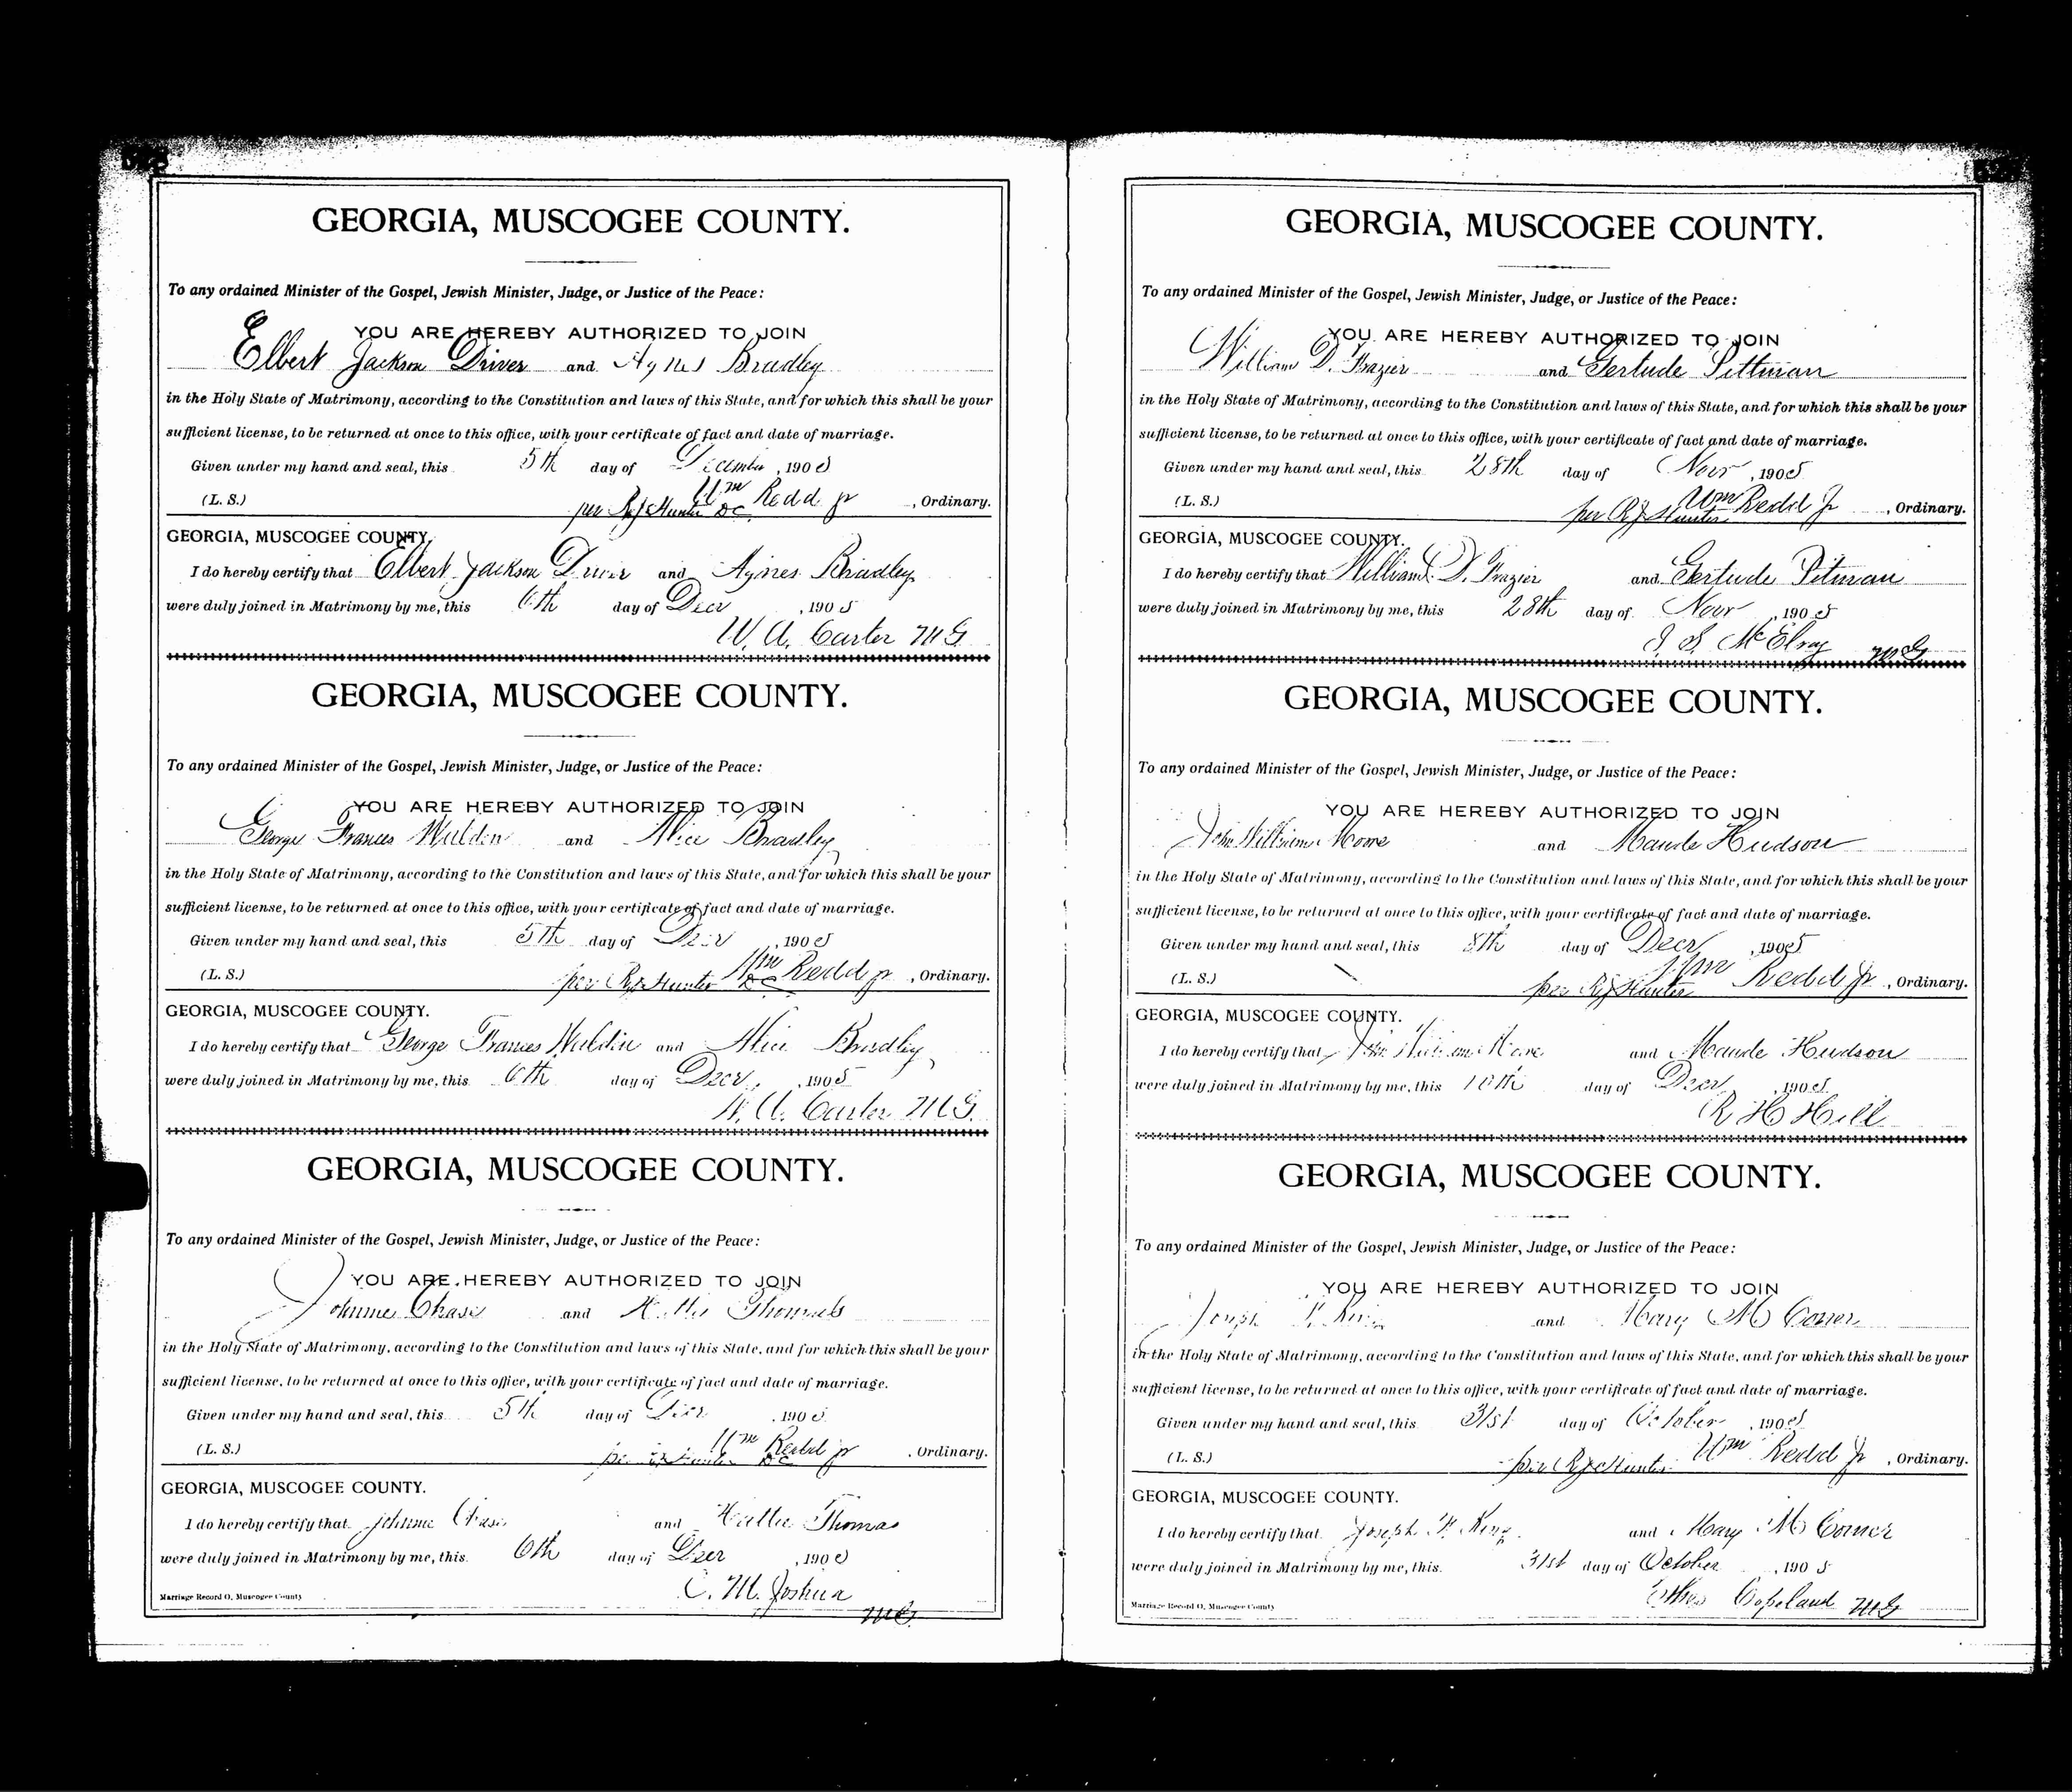 GEORGIA, MUSCOGEE COUNTY.
To any ordained Minister of the Gospel, Jewish Minister, Judge, or Justice of the Peace:
YOU ARE HEREBY AUTHORIZED TO JOIN
Elbert Jackson Driver and Agnes Bradley
in the Holy State of Matrimony, according to the Constitution and laws of this State, and for which this shall be your
sufficient license, to be returned at once to this office, with your certificate of fact and date of marriage.
Given under my hand and seal, this 5th day of December, 1905
(L. S.) per R J Hunter DC Wm Redd Jr, Ordinary.
GEORGIA, MUSCOGEE COUNTY.
I do hereby certify that Elbert Jackson Driver and Agnes Bradley
were duly joined in Matrimony by me, this 6th day of Decr, 1905
W. A. Carter MG
GEORGIA, MUSCOGEE COUNTY.
To any ordained Minister of the Gospel, Jewish Minister, Judge, or Justice of the Peace:
YOU ARE HEREBY AUTHORIZED TO JOIN
George Frances Walden and Alice Bradley
in the Holy State of Matrimony, according to the Constitution and laws of this State, and for which this shall be your
sufficient license, to be returned at once to this office, with your certificate of fact and date of marriage.
Given under my hand and seal, this 5th day of Decr, 1905
(L. S.) per R J Hunter DC Wm Redd Jr, Ordinary.
GEORGIA, MUSCOGEE COUNTY.
I do hereby certify that George Frances Waldin and Alice Bradley
were duly joined in Matrimony by me, this 6th day of Decr, 1905
W. A. Carter MG.
GEORGIA, MUSCOGEE COUNTY.
To any ordained Minister of the Gospel, Jewish Minister, Judge, or Justice of the Peace:
YOU ARE HEREBY AUTHORIZED TO JOIN
Johnnie Chase and Hattie Thomas
in the Holy State of Matrimony, according to the Constitution and laws of this State, and for which this shall be your
sufficient license, to be returned at once to this office, with your certificate of fact and date of marriage.
Given under my hand and seal, this 5th day of Decr, 1905
(L. S.) per R J Hunter DC Wm Redd Jr, Ordinary.
GEORGIA, MUSCOGEE COUNTY.
I do hereby certify that Johnnie Chase and Hattie Thomas
were duly joined in Matrimony by me, this 6th day of Decr, 1905
C. M. Joshua
MG.
Marriage Record O, Muscogee County
GEORGIA, MUSCOGEE COUNTY.
To any ordained Minister of the Gospel, Jewish Minister, Judge, or Justice of the Peace:
YOU ARE HEREBY AUTHORIZED TO JOIN
William D. Frazier and Gertude Pittman
in the Holy State of Matrimony, according to the Constitution and laws of this State, and for which this shall be your
sufficient license, to be returned at once to this office, with your certificate of fact and date of marriage.
Given under my hand and seal, this 28th day of Novr, 1905
(L. S.) per R J Hunter Wm Redd Jr, Ordinary.
GEORGIA, MUSCOGEE COUNTY.
I do hereby certify that William D. Frazier and Gertude Pitman
were duly joined in Matrimony by me, this 28th day of Novr, 1905
I. S. McElroy MG
GEORGIA, MUSCOGEE COUNTY.
To any ordained Minister of the Gospel, Jewish Minister, Judge, or Justice of the Peace:
YOU ARE HEREBY AUTHORIZED TO JOIN
John William Moore and Maude Hudson
in the Holy State of Matrimony, according to the Constitution and laws of this State, and for which this shall be your
sufficient license, to be returned at once to this office, with your certificate of fact and date of marriage.
Given under my hand and seal, this 8th day of Decr, 1905
(L. S.) per R J Hunter Wm Redd Jr, Ordinary.
GEORGIA, MUSCOGEE COUNTY.
I do hereby certify that John William Moore and Maude Hudson
were duly joined in Matrimony by me, this 10th day of Decr, 1905
R. H Hill
GEORGIA, MUSCOGEE COUNTY.
To any ordained Minister of the Gospel, Jewish Minister, Judge, or Justice of the Peace:
YOU ARE HEREBY AUTHORIZED TO JOIN
Joseph King and Mary M Comer
in the Holy State of Matrimony, according to the Constitution and laws of this State, and for which this shall be your
sufficient license, to be returned at once to this office, with your certificate of fact and date of marriage.
Given under my hand and seal, this 31st day of October, 1905
(L. S.) per R J Hunter Wm Redd Jr, Ordinary.
GEORGIA, MUSCOGEE COUNTY.
I do hereby certify that Joseph King and Mary M Comer
were duly joined in Matrimony by me, this 31st day of October, 1905
Copeland MG
Marriage Record O, Muscogee County